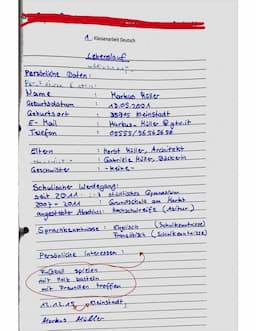 1. Klassenarbeit Deutsch
Lebenslauf
Persönliche Daten:
Name : Markus Müller
Geburtsdatum : 12.05.2001
Geburtsort : 35715 Kleinstadt
E-Mail : Markus.Müller@gtv.it
Telefon : 05553/36363636
Eltern : Horst Müller, Architekt
: Gabriele Müller, Bäckerin
Geschwister : -keine-
Schulischer Werdegang:
seit 2011 : städtisches Gymnasium
2007 - 2011 : Grundschule am Markt
angestrebter Abschluss: Hochschulreife (Abitur)
Sprachkenntnisse : Englisch (Schulkenntnisse)
Französisch (Schulkenntnisse)
Persönliche Interessen:
Fußball spielen
mit Holz basteln
mit Freunden treffen
12.12.15 Kleinstadt,
Markus Müller